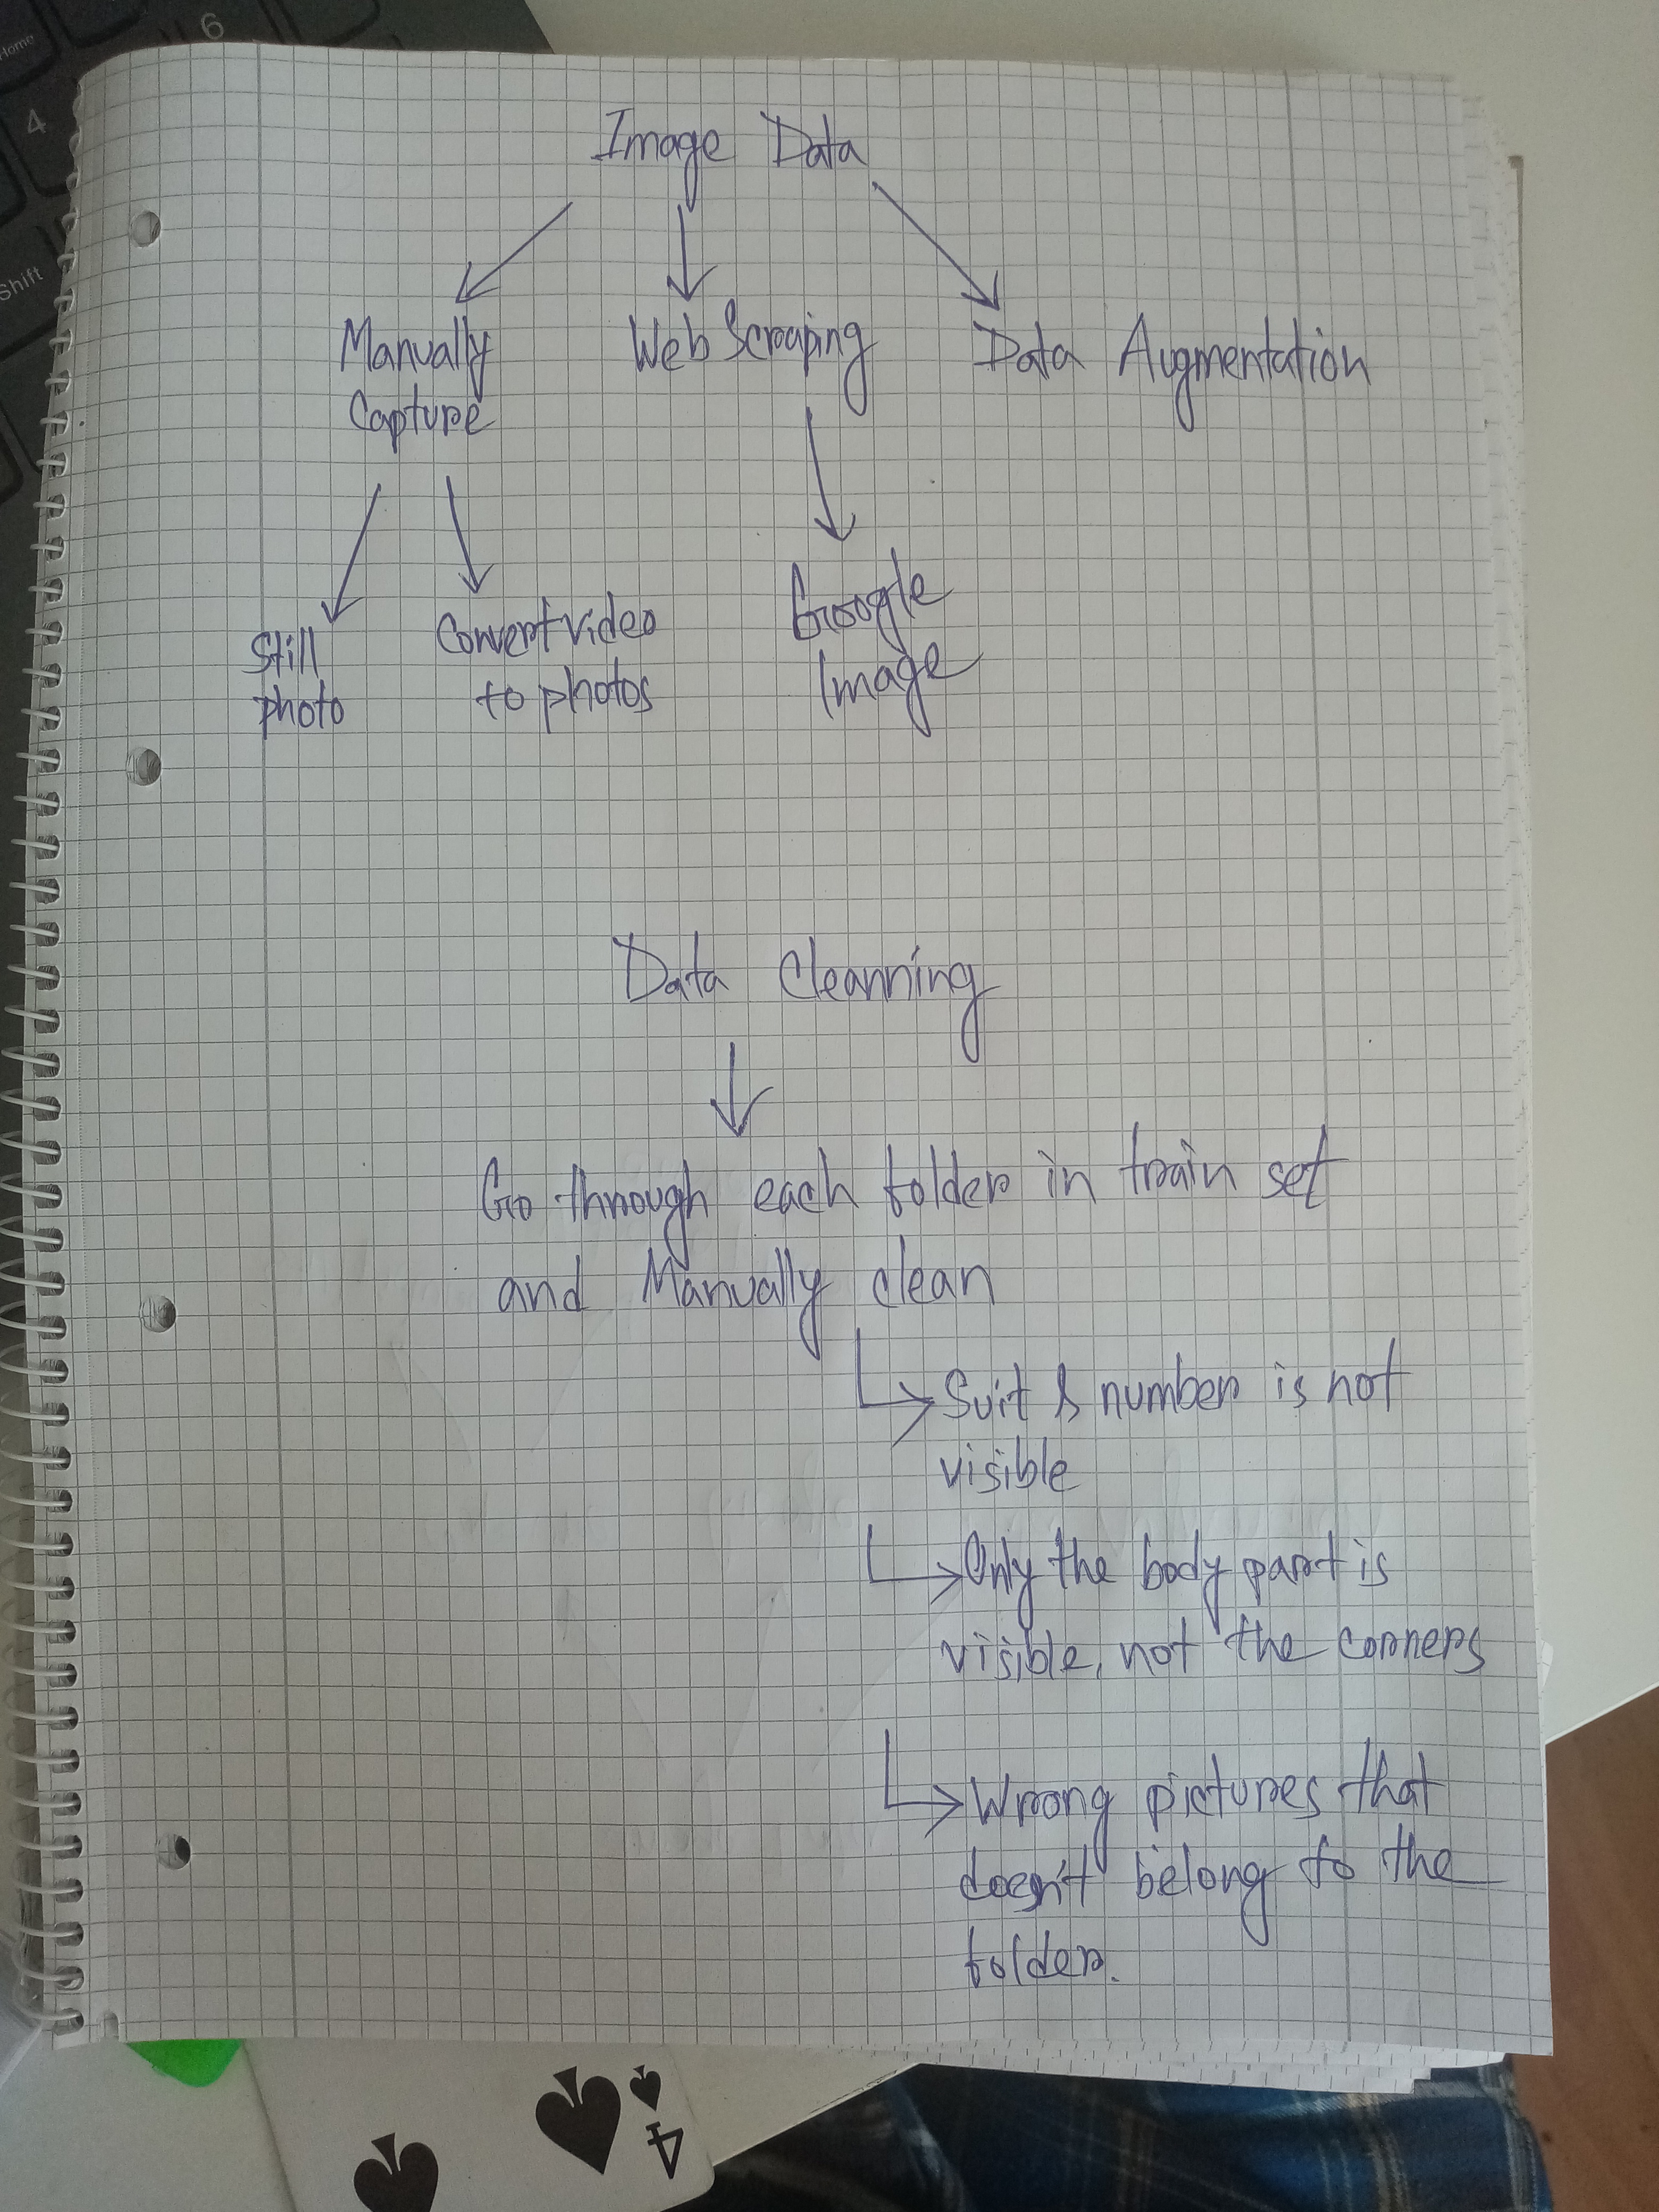 Home
6
4
Shift
Image Data
Manually Web Scraping Data Augmentation
Capture
Still Convert video Google
photo to photos Image
Data Cleanning
Go through each folder in train set
and Manually clean
Suit & number is not
visible
Only the body part is
visible, not the corners
Wrong pictures that
doesn't belong to the
folder.
4